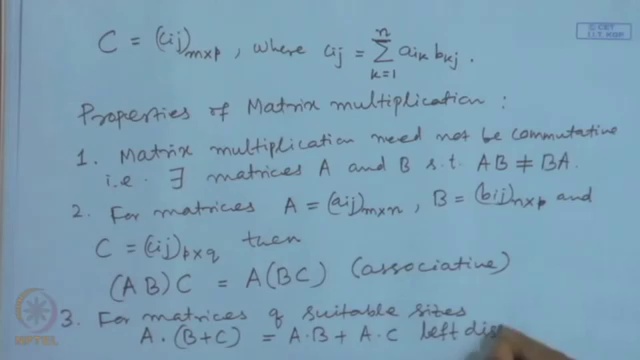 © CET
I.I.T. KGP
C = (cij)m×p, where cij = n∑k=1 aik bkj.
Properties of Matrix multiplication :
1. Matrix multiplication need not be commutative
i.e. ∃ matrices A and B s.t. AB ≠ BA.
2. For matrices A = (aij)m×n, B = (bij)n×p and
C = (cij)p×q then
(AB)C = A(BC) (associative)
3. For matrices of suitable sizes
A·(B+C) = A·B + A·C left dis
NPTEL